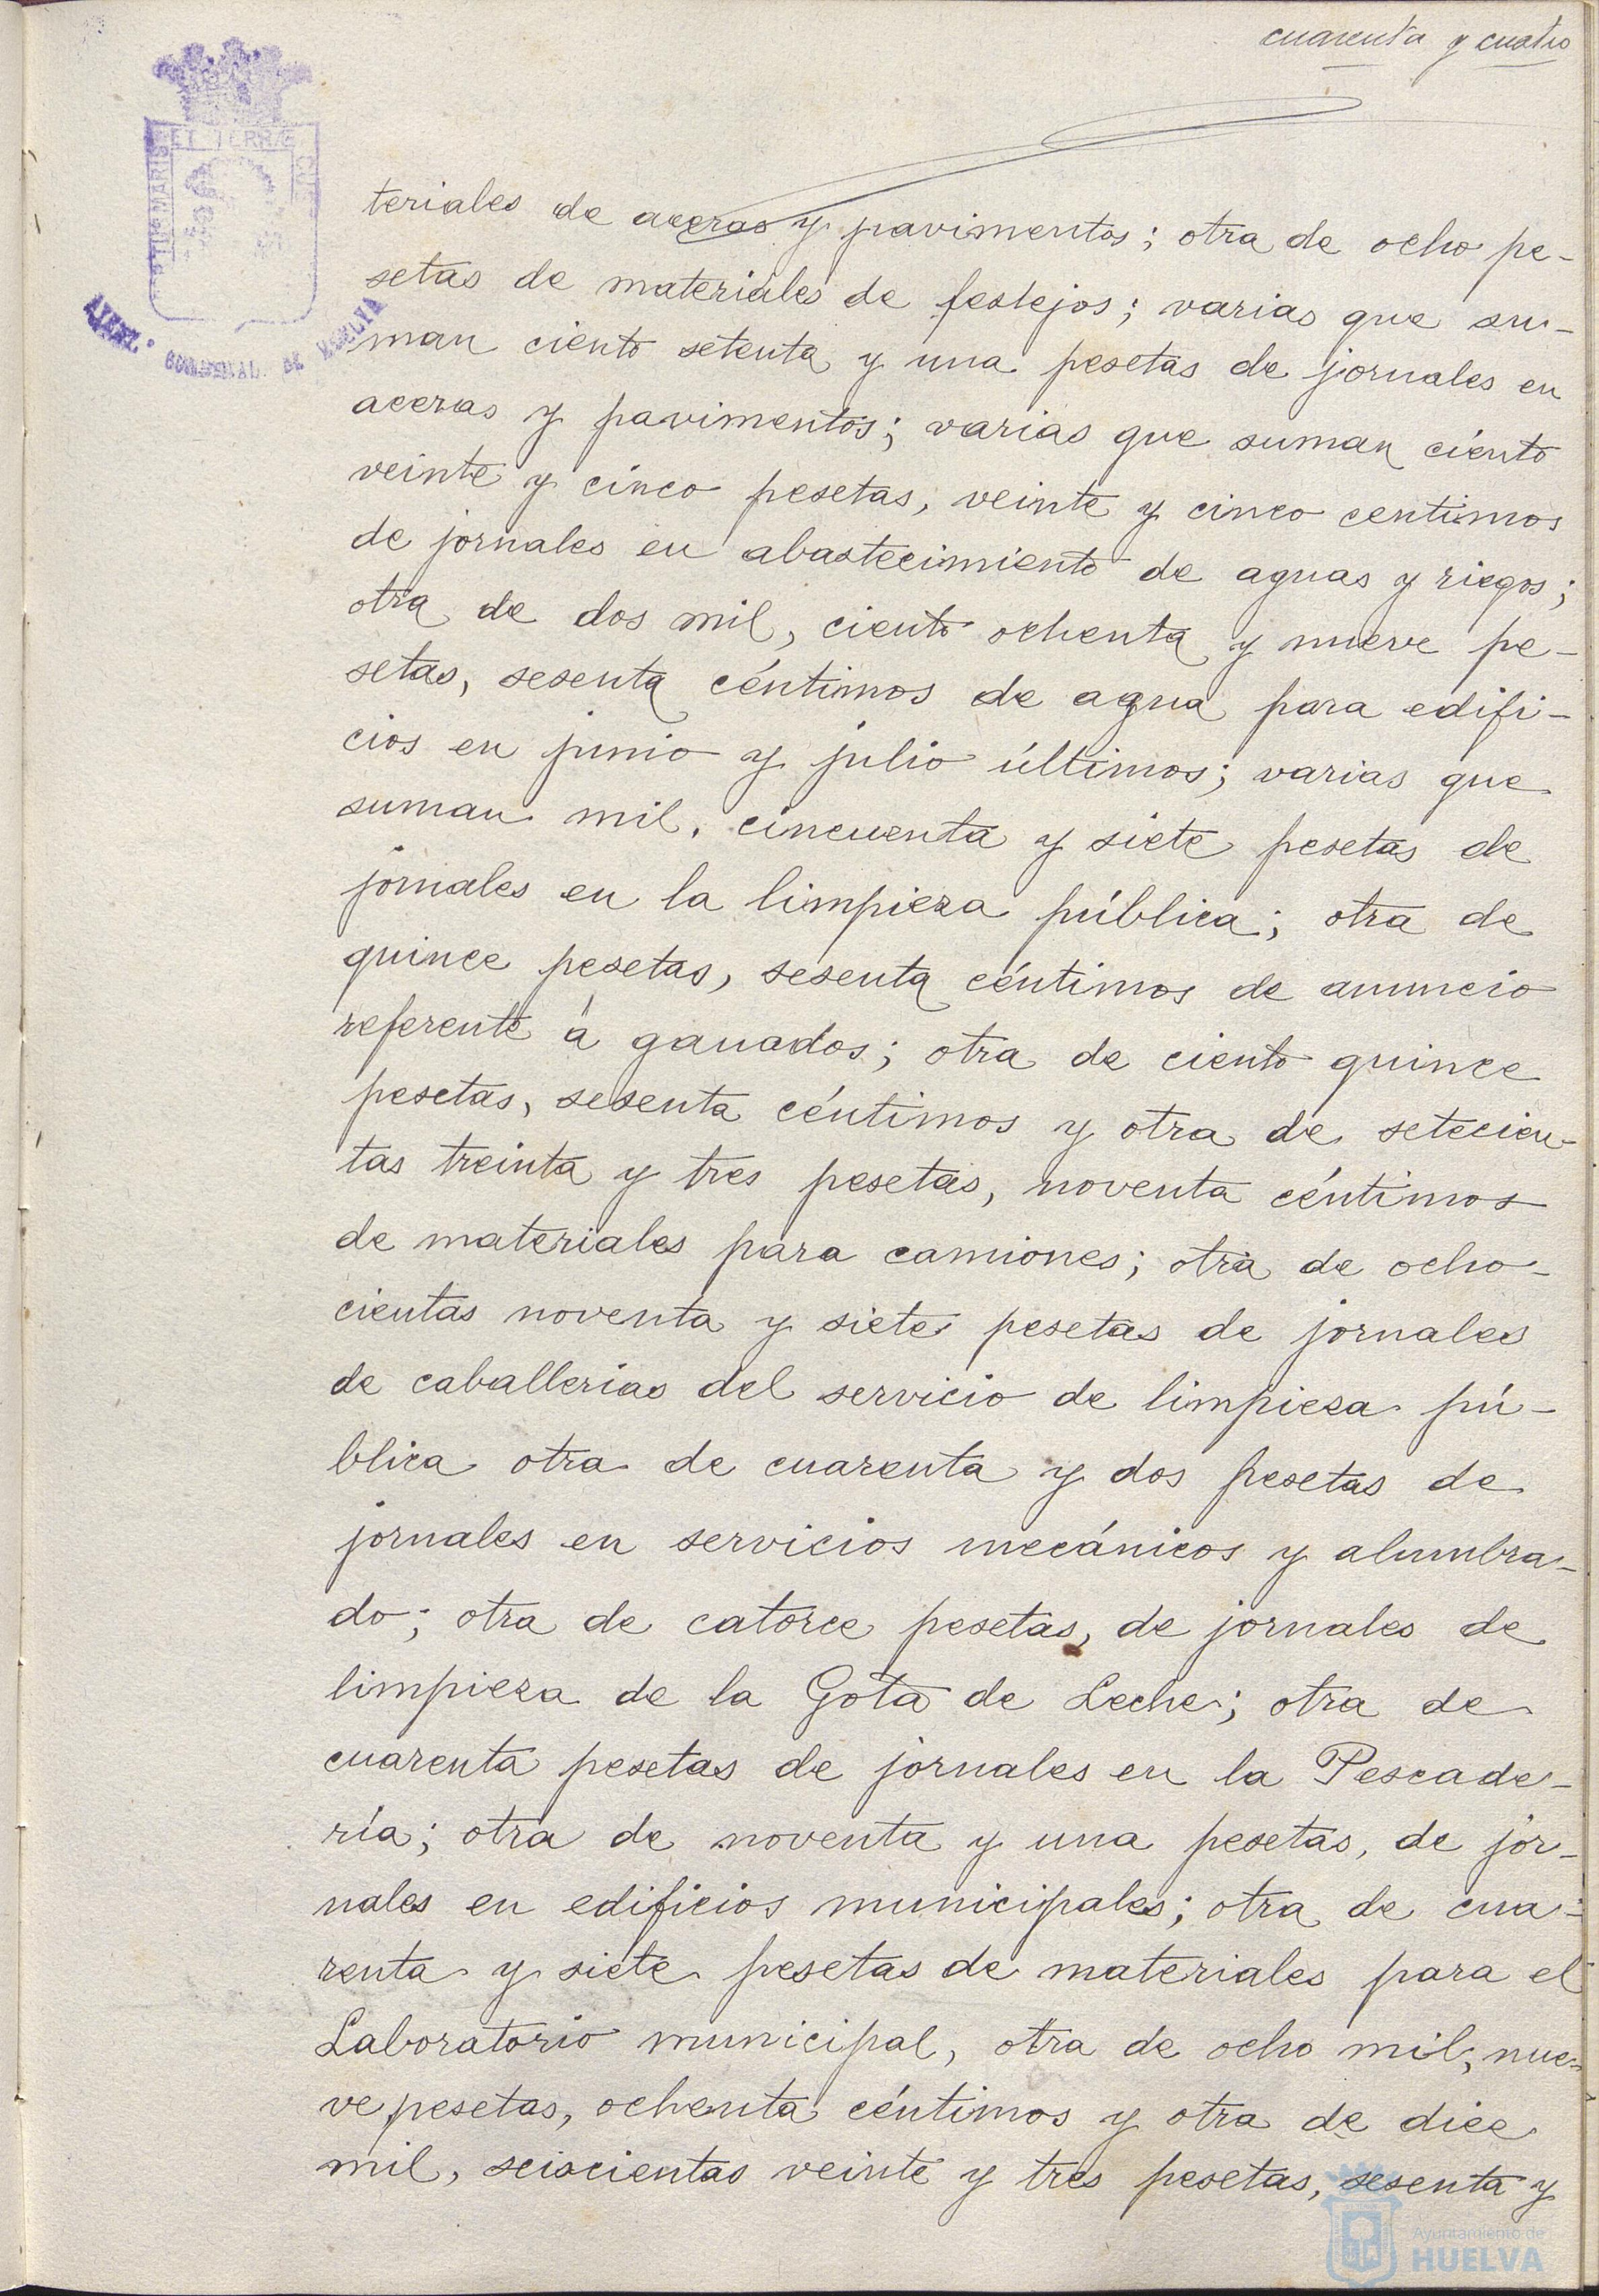 cuarenta y cuatro
ET TERRÆ
MARIS
DE HUELVA
teriales de aceras y pavimentos; otra de ocho pe-
setas de materiales de festejos; varias que su-
man ciento setenta y una pesetas de jornales en
aceras y pavimentos; varias que suman ciento
veinte y cinco pesetas, veinte y cinco centimos
de jornales en abastecimiento de aguas y riegos;
otra de dos mil, ciento ochenta y nueve pe-
setas, sesenta céntimos de agua para edifi-
cios en junio y julio últimos; varias que
suman mil, cincuenta y siete pesetas de
jornales en la limpieza pública; otra de
quince pesetas, sesenta céntimos de anuncio
referente á ganados; otra de ciento quince
pesetas, sesenta céntimos y otra de setecien-
tas treinta y tres pesetas, noventa céntimos
de materiales para camiones; otra de ocho-
cientas noventa y siete pesetas de jornales
de caballerias del servicio de limpieza pú-
blica otra de cuarenta y dos pesetas de
jornales en servicios mecánicos y alumbra-
do; otra de catorce pesetas, de jornales de
limpieza de la Gota de Leche; otra de
cuarenta pesetas de jornales en la Pescade-
ría; otra de noventa y una pesetas, de jor-
nales en edificios municipales; otra de cua-
renta y siete pesetas de materiales para el
Laboratorio municipal, otra de ocho mil, nue-
ve pesetas, ochenta céntimos y otra de diez
mil, seiscientas veinte y tres pesetas, sesenta y
Ayuntamiento de
HUELVA